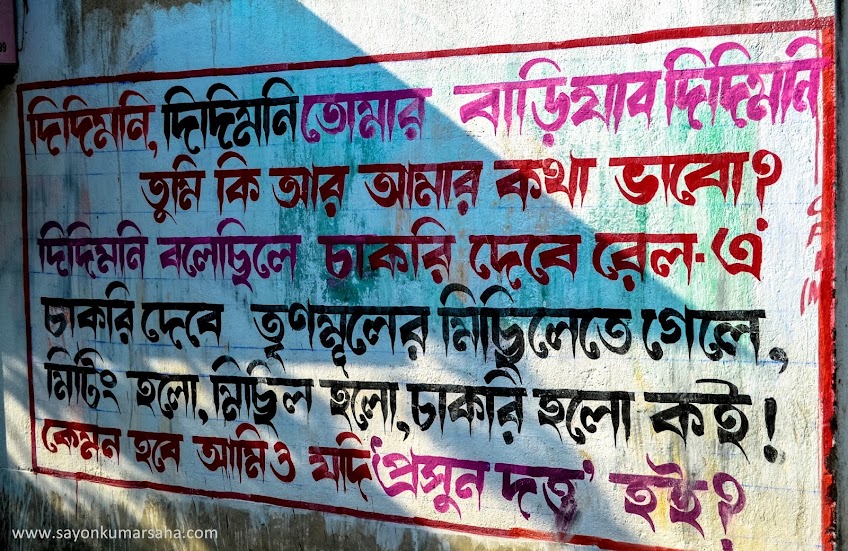 দিদিমনি, দিদিমনি তোমার বাড়ি যাব দিদিমনি
তুমি কি আর আমার কথা ভাবো?
দিদিমনি বলেছিলে চাকরি দেবে রেল-এ
চাকরি দেবে তৃণমূলের মিছিলেতে গেলে,
মিটিং হলো, মিছিল হলো, চাকরি হলো কই!
কেমন হবে আমিও যদি 'প্রসুন দত্ত' হই?
www.sayonkumarsaha.com